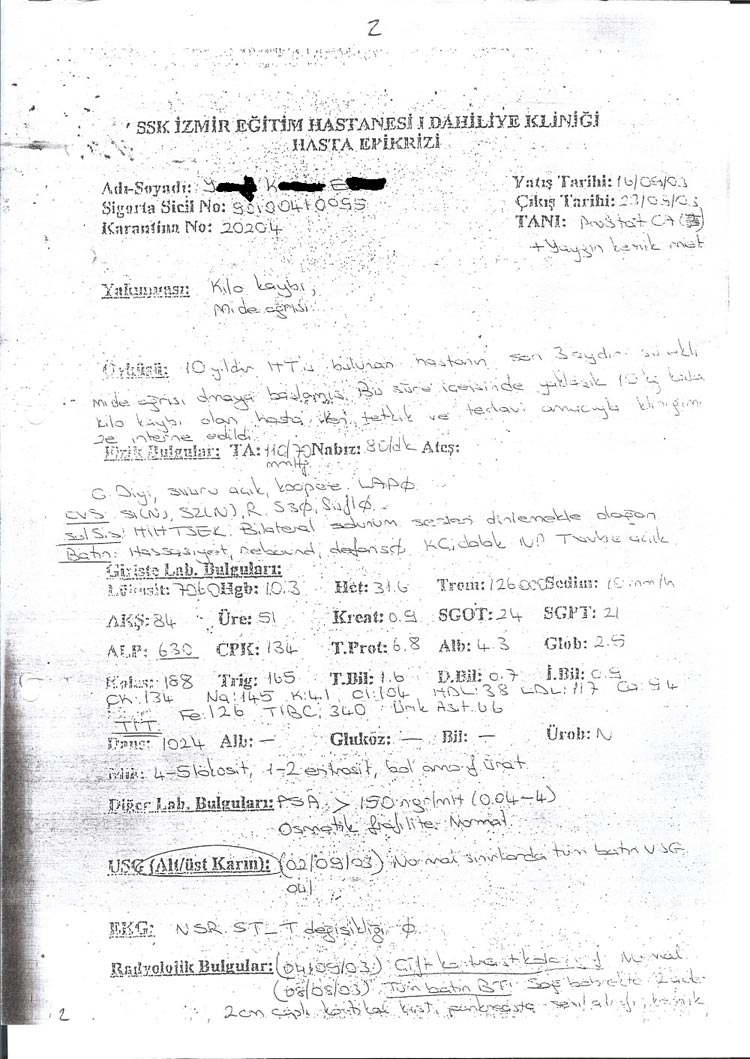 2
SSK İZMİR EĞİTİM HASTANESİ I DAHİLİYE KLİNİĞİ
HASTA EPİKRİZİ
Adı-Soyadı: Yatış Tarihi: 16/09/03
Sigorta Sicil No: Çıkış Tarihi: 23/09/03
Karantina No: 20204 TANI: Prostat CA
+ Yaygın kemik met
Yakınması: Kilo kaybı,
mide ağrısı.
Öyküsü: 10 yıldır HT'u bulunan hastanın son 3 aydır sürekli
mide ağrısı olmaya başlamış. Bu süre içerisinde yaklaşık 10 kg kadar
kilo kaybı olan hasta tetkik ve tedavi amacıyla kliniğimi
ze interne edildi.
Fizik Bulgular: TA: 110/70 Nabız: 80/dk Ateş:
mmHg
G. D iyi, şuuru açık, koopere. LAP Ø
CVS: S1(N), S2(N), R. S3Ø, Ø
Sol Sis: HİHTSEK. Bilateral solunum sesleri dinlemekle olağan
Batın: Hassasiyet, rebound, defans Ø KC, dalak NP Traube açık
Girişte Lab. Bulguları:
Lökosit: 7060 Hgb: 10.3 Hct: 31.6 Trom: 126000 Sedim: mm/h
AKŞ: 84 Üre: 51 Kreat: 0.9 SGOT: 24 SGPT: 21
ALP: 630 CPK: 134 T.Prot: 6.8 Alb: 4.3 Glob: 2.5
Koles: 188 Trig: 165 T.Bil: 1.6 D.Bil: 0.7 İ.Bil: 0.9
CK: 134 Na: 145 K: 4.1 Cl: 104 HDL: 38 LDL: 117 Ca: 9.4
Fe: 126 TIBC: 340 Ürik Asit: 6.6
TİT:
Dans: 1024 Alb: — Glukoz: — Bil: — Ürob: N
Mik: 4-5 lökosit, 1-2 eritrosit, bol amorf ürat.
Diğer Lab. Bulguları: PSA > 150 ngr/ml (0.04-4)
Osmotik frajilite: Normal
USG (Alt/üst Karın): (02/09/03) Normal sınırlarda tüm batın USG
04/
EKG: NSR. ST-T değişikliği Ø
Radyolojik Bulgular: (04/09/03) Çift kontrast kolon Normal
(08/09/03) Tüm batın BT: Sağ böbrekte 2 adet
2 cm çaplı kortikal kist, pankreasta kemik
2